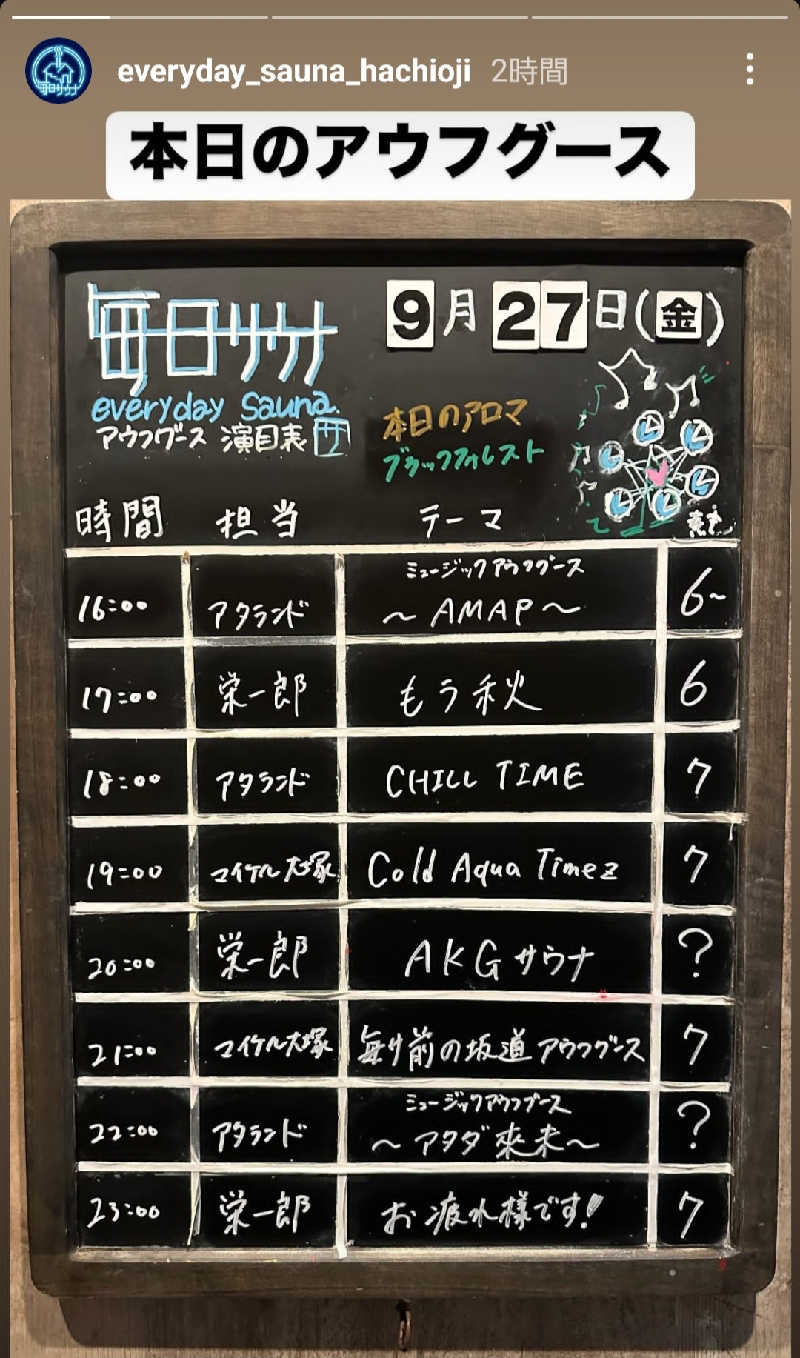 everyday_sauna_hachioji 2時間
本日のアウフグース
毎日サウナ
9月27日(金)
everyday Sauna.
アウフグース 演目表 サ
本日のアロマ
ブラックフォレスト
時間 担当 テーマ
ミュージックアウフグース
16:00 アタランド ～AMAP～ 6~
17:00 栄一郎 もう秋 6
18:00 アタランド CHILL TIME 7
19:00 マイケル大塚 Cold Aqua Timez 7
20:00 栄一郎 AKGサウナ ?
21:00 マイケル大塚 毎サ前の坂道アウフグース 7
ミュージックアウフグース
22:00 アタランド ～アタダ來未～ ?
23:00 栄一郎 お疲れ様です! 7